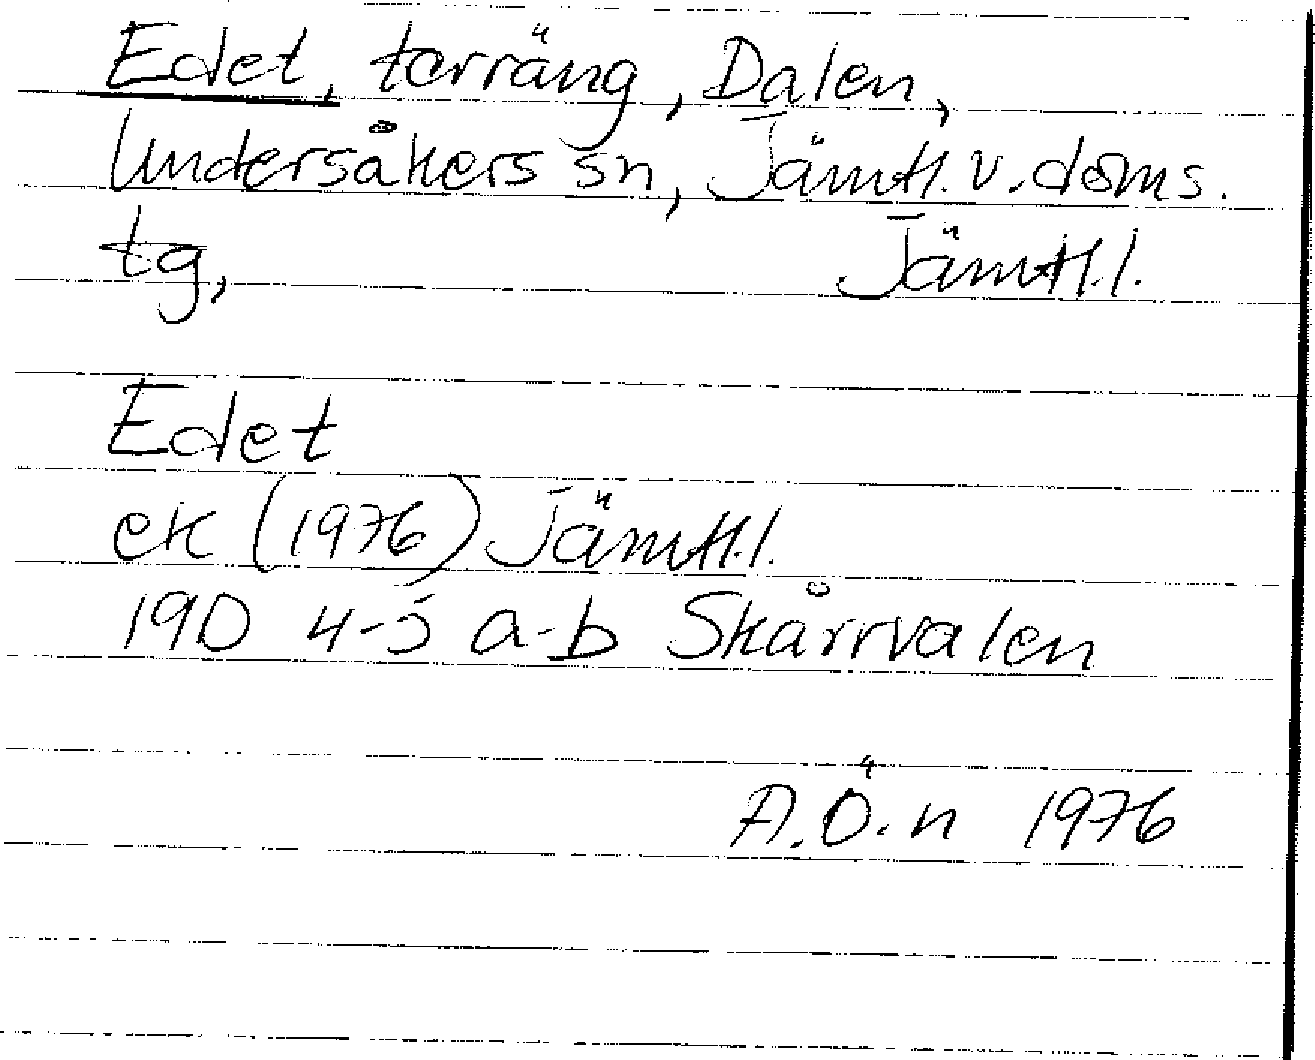 Edet, terräng, Dalen,
Undersåkers sn, Jämtl. v. doms.
tg, Jämtl. l.
Edet
ek (1976) Jämtl. l.
19D 4-5 a-b Skärvalen
A.Ö.n 1976